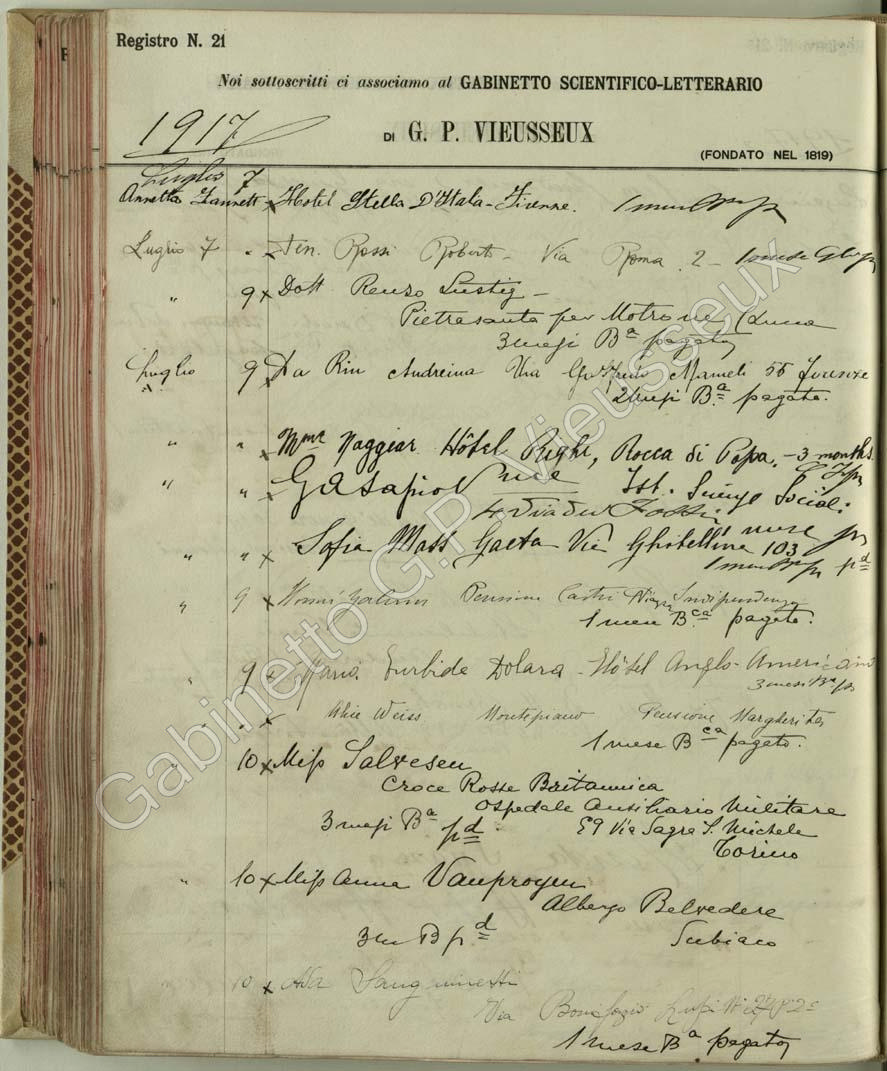 Registro N. 21
Noi sottoscritti ci associamo al GABINETTO SCIENTIFICO-LETTERARIO
1917
DI G. P. VIEUSSEUX
(FONDATO NEL 1819)
Luglio 7
Annetta × Hotel Stella D'Itala - Firenze. 1 mese
Luglio 7 " × Ten. Rossi Roberto - Via Roma 2 - 1 mese
" 9 × Dott Renzo Lustig -
Pietrasanta per Motrone (Lucca
3 mesi Bª pagato
Luglio 9 × Da Rin Andreina Via Goffredo Mameli 55 Firenze
2 mesi Bª pagato.
" " × Mme Naggiar Hôtel Righi, Rocca di Papa. - 3 months.
" " × Ist. Scienze Sociali.
4 Via dei Fossi
" " × Sofia Mass Gaeta Via Ghibellina 103
1 mese pd
" 9 × Pensione Castri Piazza Indipendenza
1 mese Bca pagato.
" 9 × Maria Iturbide Dolara - Hôtel Anglo-Americano
3 mesi
" " × Alice Weiss Montepiano Pensione Margherita
1 mese Bca pagato.
" 10 × Miss Salvesen
Croce Rossa Britannica
Ospedale Ausiliario Militare
3 mesi Bª pd. 59 Via Sagra S. Michele
Torino
" 10 × Miss Anna
Albergo Belvedere
3 m B pd Subiaco
" 10 × Ada Sanguinetti
Via Bonifazio Lupi
1 mese Bª pagato
Gabinetto G.P. Vieusseux